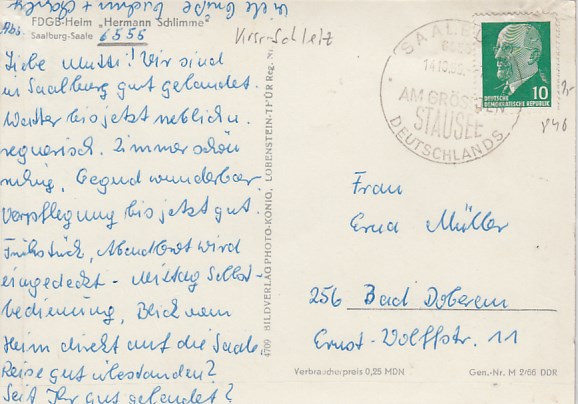 Viele Grüße
FDGB-Heim „Hermann Schlimme"
Abs. Saalburg-Saale 6555
Krsr-Schleiz
Liebe Mutti! Wir sind
in Saalburg gut gelandet.
Wetter bis jetzt neblich u.
regnerisch. Zimmer schön
ruhig, Gegend wunderbar
Verpflegung bis jetzt gut.
Frühstück, Abendbrot wird
eingedeckt - Mittag Selbst-
bedienung, Blick vom
Heim direkt auf die Saale
Reise gut überstanden?
Seit Ihr gut gelandet?
4709 BILDVERLAG PHOTO-KÖNIG, LOBENSTEIN-THÜR Reg. Nr.
AM GRÖS
STAUSEE
DEUTSCHLANDS
DEUTSCHE
DEMOKRATISCHE REPUBLIK
10
Frau
Erna Müller
256 Bad Doberan
Ernst-Wolffstr. 11
Verbraucherpreis 0,25 MDN
Gen.-Nr. M 2/66 DDR